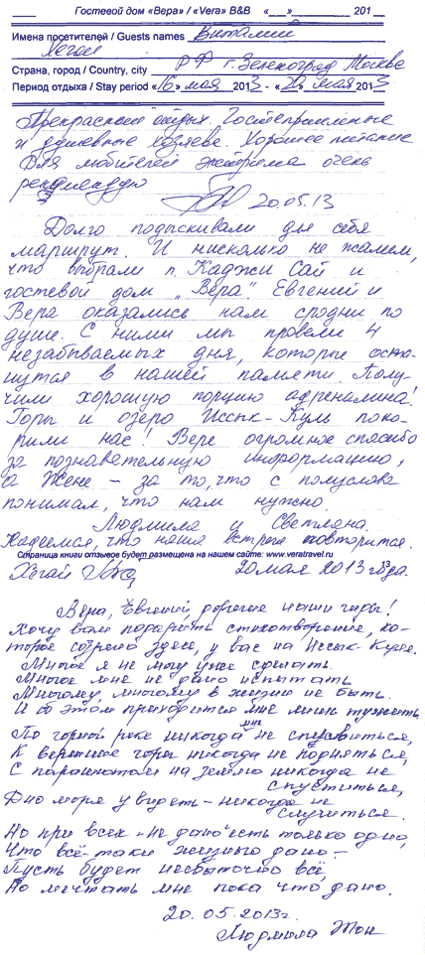 Гостевой дом «Вера» / «Vera» B&B «___»____________ 201__
Имена посетителей / Guests names Виталий
Хегай
Страна, город / Country, city РФ г. Зеленоград Москва
Период отдыха / Stay period «16» мая 2013 - «20» мая 2013
Прекрасный отдых. Гостеприимные
и душевные хозяева. Хорошее питание
Для любителей экстрима очень
рекомендую
20.05.13
Долго подыскивали для себя
маршрут. И нисколько не жалеем,
что выбрали п. Каджи Сай и
гостевой дом „Вера". Евгений и
Вера оказались нам сродни по
душе. С ними мы провели 4
незабываемых дня, которые оста-
нутся в нашей памяти. Полу-
чили хорошую порцию адреналина!
Горы и озеро Иссык-Куль поко-
рили нас! Вере огромное спасибо
за познавательную информацию,
а Жене – за то, что с полуслова
понимал, что нам нужно.
Людмила и Светлана.
Надеемся, что наша встреча повторится.
Страница книги отзывов будет размещена на нашем сайте: www.veratravel.ru
Хегай 20 мая 2013 года.
Вера, Евгений, дорогие наши гиды!
Хочу вам подарить стихотворение, ко-
торое созрело здесь, у вас на Иссык-Куле.
Многое я не могу уже сделать.
Многое мне не дано испытать
Многому, многому в жизни не быть.
И об этом приходится мне лишь тужить.
По горной реке никогда мне не спуститься,
К вершине горы никогда не подняться,
С парашютом на землю никогда не
спуститься,
Дно моря увидеть – никогда не
случиться.
Но при всех „не дано" есть только одно,
Что всё-таки жизнью дано –
Пусть будет несбыточно всё,
Но мечтать мне пока что дано.
20.05.2013г.
Людмила Тон